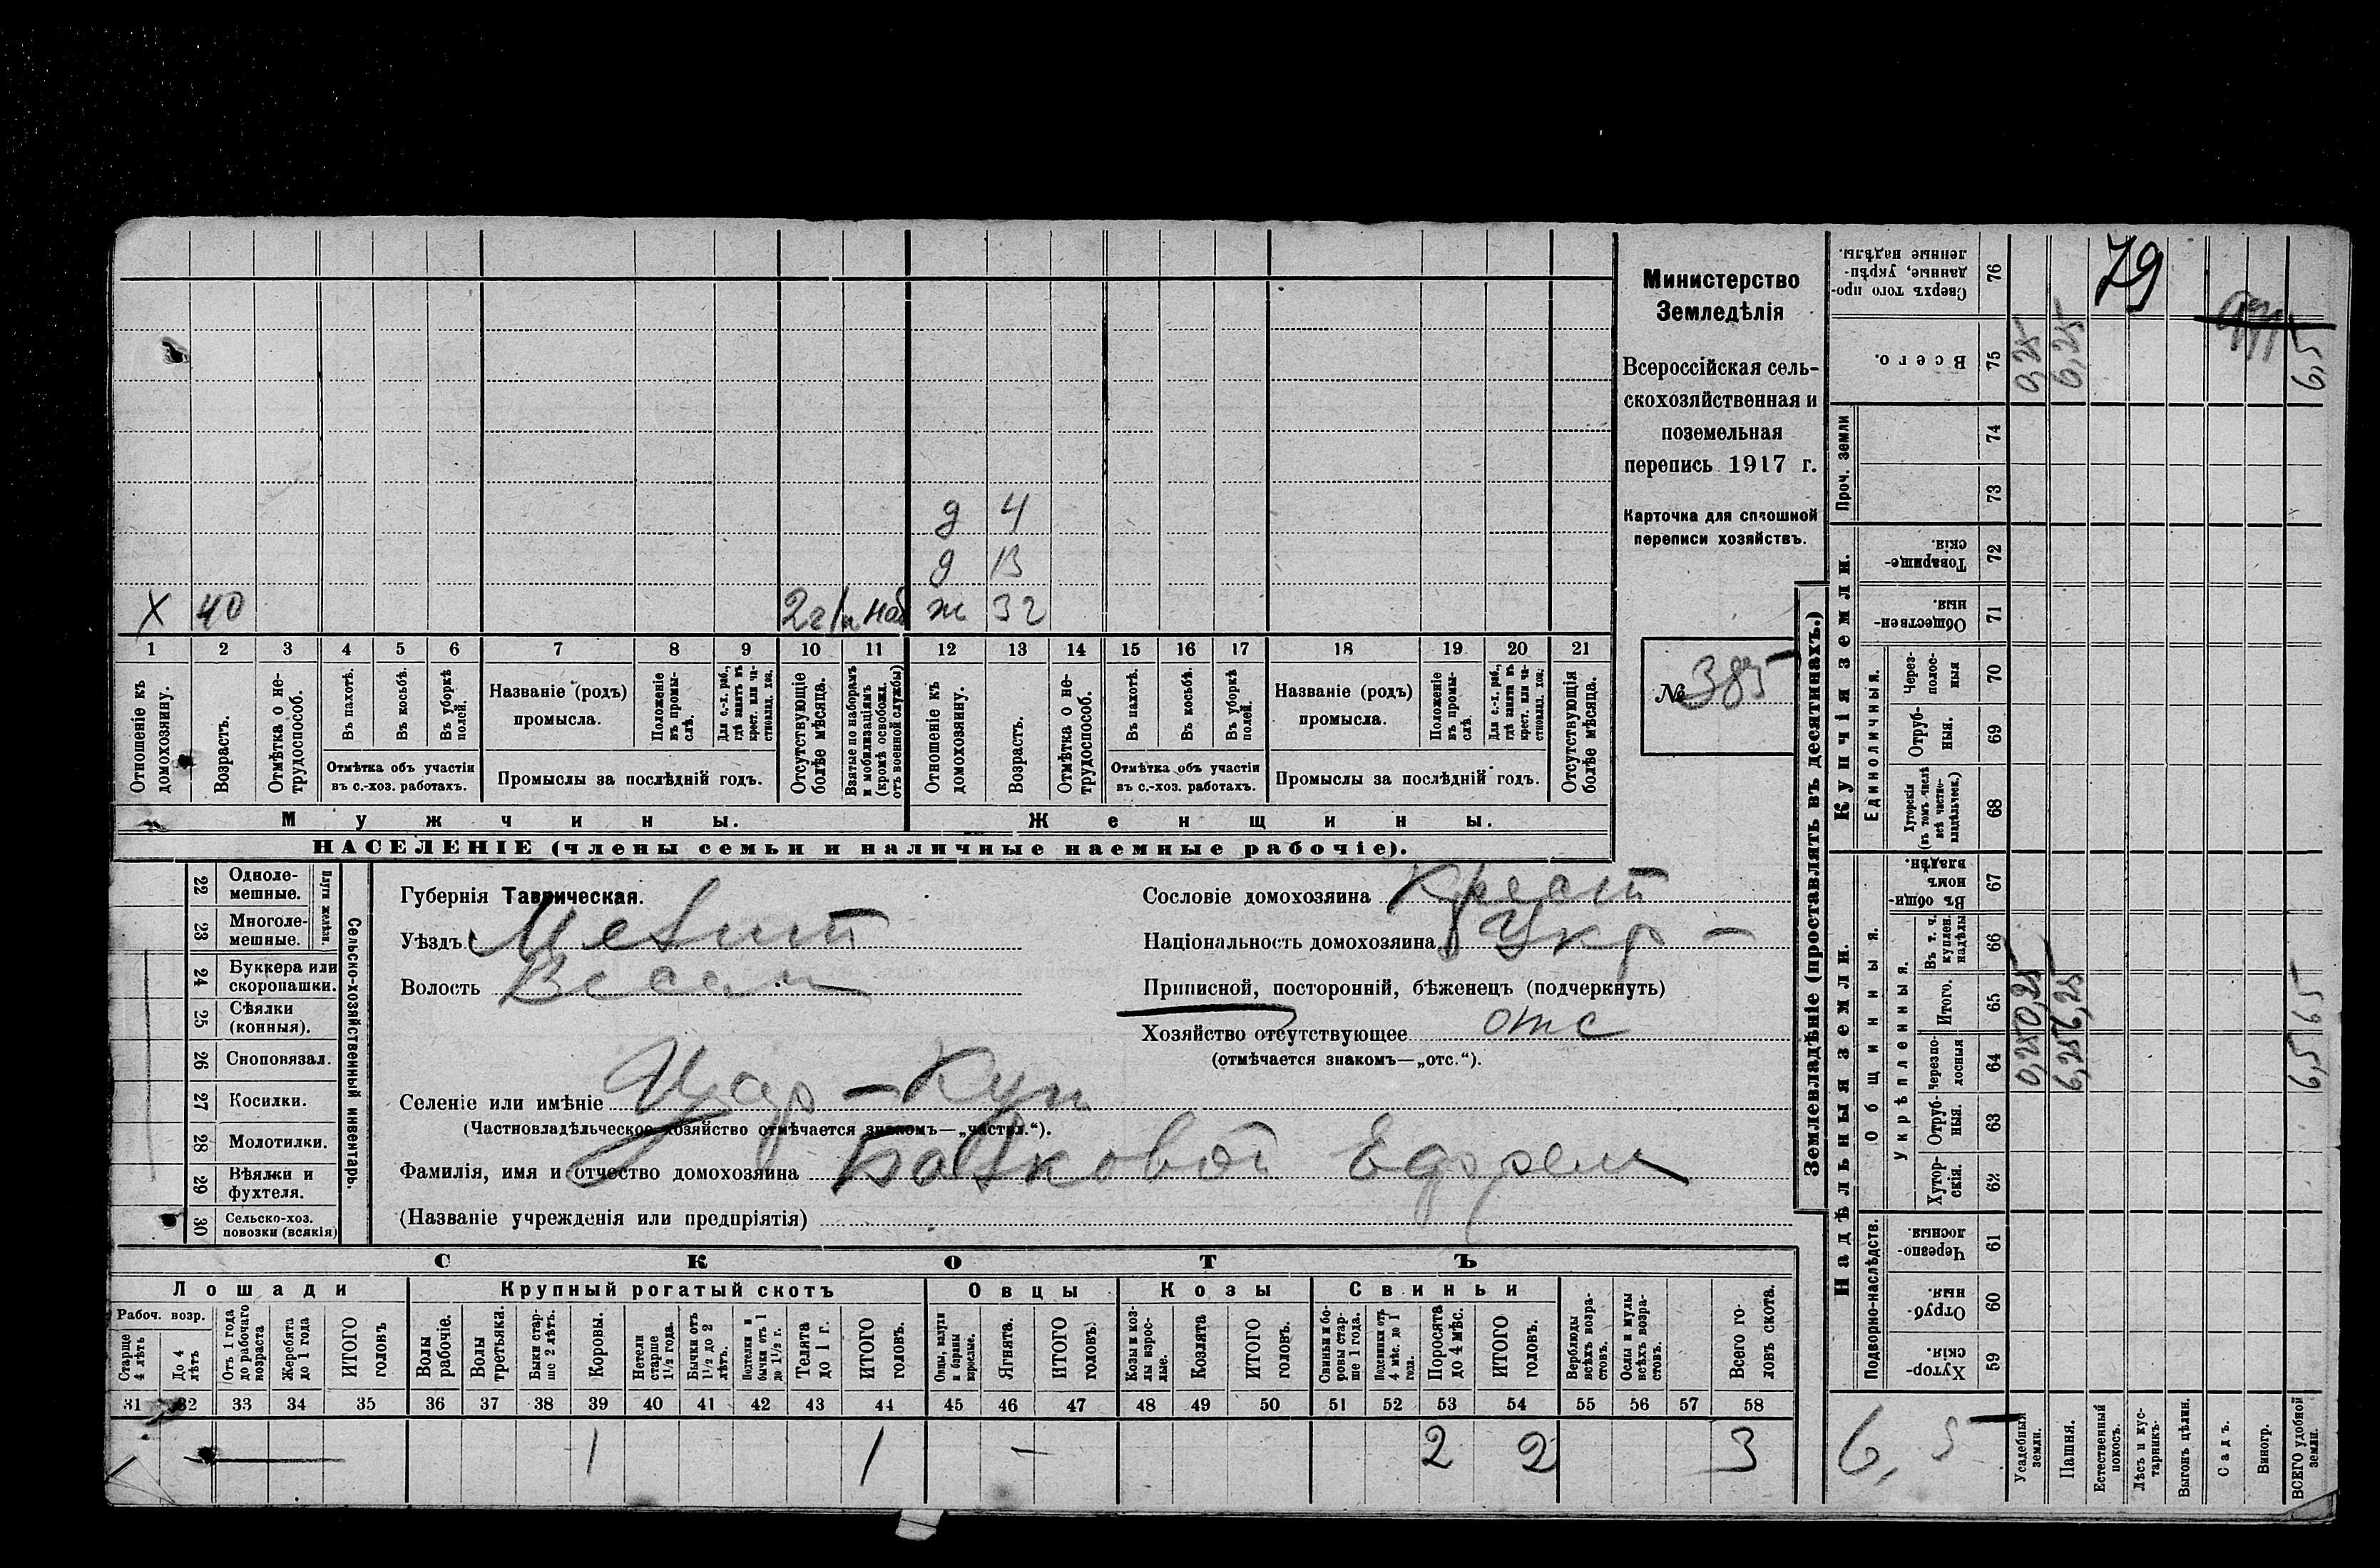 д 4
д 13
Х 40 2 г на наб ж 32
1 2 3 4 5 6 7 8 9 10 11 12 13 14 15 16 17 18 19 20 21
Отношеніе къ домохозяину.
Возрастъ.
Отмѣтка о нетрудоспособ.
Въ пахотѣ.
Въ косьбѣ.
Въ уборкѣ полей.
Отмѣтка объ участіи
въ с.-хоз. работахъ.
Названіе (родъ)
промысла.
Положеніе въ промыслѣ.
Для с.-х. раб., гдѣ занятъ въ крест. или частновлад. хоз.
Промыслы за послѣдній годъ.
Отсутствующіе болѣе мѣсяца.
Взятые по наборамъ и мобилизаціямъ (кромѣ освобожд. отъ военной службы)
Отношеніе къ домохозяину.
Возрастъ.
Отмѣтка о нетрудоспособ.
Въ пахотѣ.
Въ косьбѣ.
Въ уборкѣ полей.
Отмѣтка объ участіи
въ с.-хоз. работахъ.
Названіе (родъ)
промысла.
Положеніе въ промыслѣ.
Для с.-х. раб., гдѣ заняты въ крест. или частновлад. хоз.
Промыслы за послѣдній годъ.
Отсутствующія болѣе мѣсяца.
Мужчины. Женщины.
НАСЕЛЕНІЕ (члены семьи и наличные наемные рабочіе).
Министерство
Земледѣлія
Всероссійская сель-
скохозяйственная и
поземельная
перепись 1917 г.
Карточка для сплошной
переписи хозяйствъ.
№ 385
Сельско-хозяйственный инвентарь.
Плуги желѣзн.
22 Одноле-
мешные.
23 Многоле-
мешные.
24 Буккера или
скоропашки.
25 Сѣялки
(конныя).
26 Сноповязал.
27 Косилки.
28 Молотилки.
29 Вѣялки и
фухтеля.
30 Сельско-хоз.
повозки (всякія)
Губернія Таврическая.
Уѣздъ Мелит
Волость
Сословіе домохозяина Крест
Національность домохозяина Укр –
Приписной, посторонній, бѣженецъ (подчеркнуть)
Хозяйство отсутствующее отс
(отмѣчается знакомъ—„отс.“).
Селеніе или имѣніе
(Частновладѣльческое хозяйство отмѣчается знакомъ—„частвл.“).
Фамилія, имя и отчество домохозяина Ефрем
(Названіе учрежденія или предпріятія)
СКОТЪ
Лошади Крупный рогатый скотъ Овцы Козы Свиньи
Рабоч. возр.
Старше 4 лѣтъ
До 4 лѣтъ
Отъ 1 года до рабочаго возраста
Жеребята до 1 года
ИТОГО головъ
Волы рабочіе.
Волы третьяки.
Быки старше 2 лѣтъ.
Коровы.
Нетели старше 1½ года.
Бычки отъ 1½ до 2 лѣтъ.
Подтелки и бычки отъ 1 до 1½ г.
Телята до 1 г.
ИТОГО головъ.
Овцы, валухи и бараны взрослые.
Ягнята.
ИТОГО головъ.
Козы и козлы взрослые.
Козлята
ИТОГО головъ.
Свиньи и боровы старше 1 года.
Подсвинки отъ 4 мѣс. до 1 года.
Поросята до 4 мѣс.
ИТОГО головъ.
Верблюды всѣхъ возрастовъ.
Ослы и мулы всѣхъ возрастовъ.
Всего головъ скота.
31 32 33 34 35 36 37 38 39 40 41 42 43 44 45 46 47 48 49 50 51 52 53 54 55 56 57 58
1 1 – 2 2 3
Землевладѣніе (проставлять въ десятинахъ.)
Купчія земли.
Надѣльныя земли.
Проч. земли
Единоличныя.
Общинныя.
Укрѣпленныя.
Подворно-наслѣдств.
Сверхъ того проданные, укрѣпленные надѣлы. 76 79
Всего. 75 0,25 6,25 6,5
74
73
Товарищескія. 72
Общественныя. 71
Черезполосныя 70
Отрубныя. 69
Хуторскія (въ томъ числѣ всѣ частновладѣльческ.) 68
Въ общинномъ владѣн. 67
Въ т. ч. куплен. надѣлы 66
Итого. 65 0,25 6,25 6,5
Черезполосныя 64 0,25 6,25 6,5
Отрубныя. 63
Хуторскія. 62
Черезполосныя. 61
Отрубныя. 60
Хуторскія. 59
6,5
Усадебныя земли.
Пашня.
Естественный покосъ.
Лѣсъ и кустарникъ.
Выгонъ цѣлин.
Садъ.
Виногр.
ВСЕГО удобной земли.